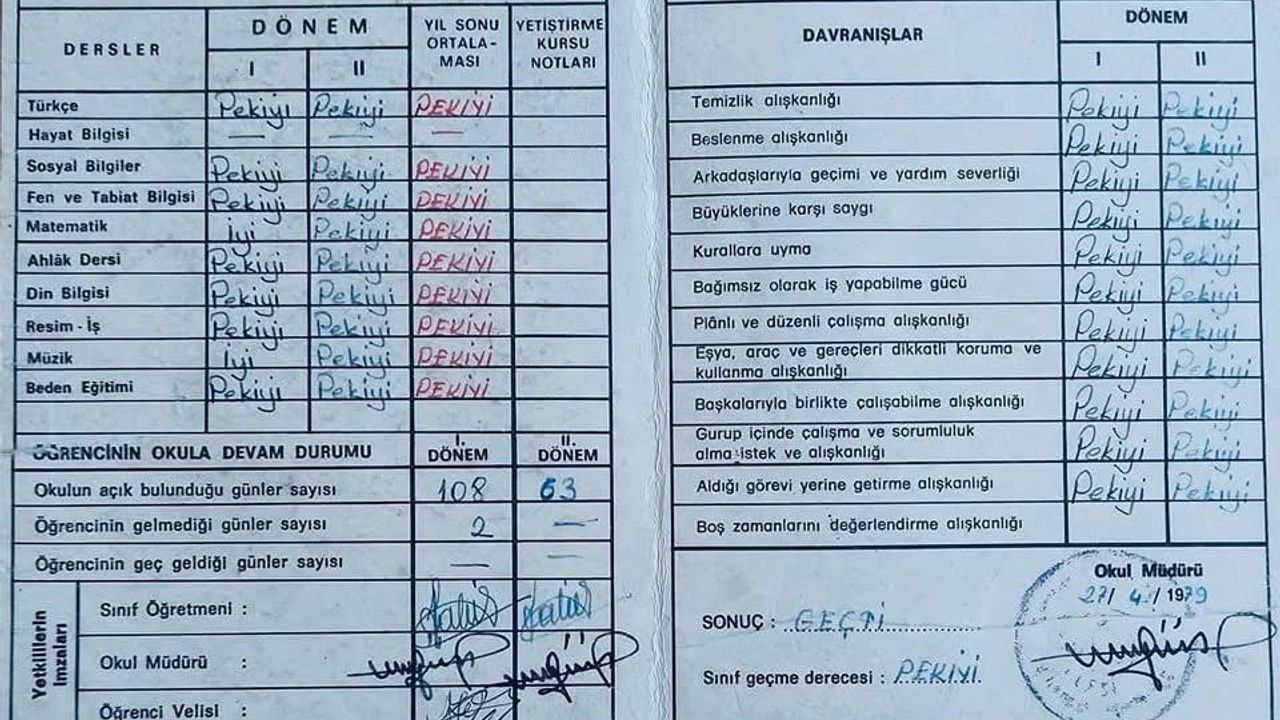 DERSLER DÖNEM YIL SONU ORTALA-MASI YETİŞTİRME KURSU NOTLARI
I II
Türkçe Pekiyi Pekiyi PEKİYİ
Hayat Bilgisi — — —
Sosyal Bilgiler Pekiyi Pekiyi PEKİYİ
Fen ve Tabiat Bilgisi Pekiyi Pekiyi PEKİYİ
Matematik İyi Pekiyi PEKİYİ
Ahlâk Dersi Pekiyi Pekiyi PEKİYİ
Din Bilgisi Pekiyi Pekiyi PEKİYİ
Resim - İş Pekiyi Pekiyi PEKİYİ
Müzik İyi Pekiyi PEKİYİ
Beden Eğitimi Pekiyi Pekiyi PEKİYİ
ÖĞRENCİNİN OKULA DEVAM DURUMU I. DÖNEM II. DÖNEM
Okulun açık bulunduğu günler sayısı 108 63
Öğrencinin gelmediği günler sayısı 2 —
Öğrencinin geç geldiği günler sayısı — —
Yetkililerin İmzaları
Sınıf Öğretmeni :
Okul Müdürü :
Öğrenci Velisi :
DAVRANIŞLAR DÖNEM
I II
Temizlik alışkanlığı Pekiyi Pekiyi
Beslenme alışkanlığı Pekiyi Pekiyi
Arkadaşlarıyla geçimi ve yardım severliği Pekiyi Pekiyi
Büyüklerine karşı saygı Pekiyi Pekiyi
Kurallara uyma Pekiyi Pekiyi
Bağımsız olarak iş yapabilme gücü Pekiyi Pekiyi
Plânlı ve düzenli çalışma alışkanlığı Pekiyi Pekiyi
Eşya, araç ve gereçleri dikkatli koruma ve
kullanma alışkanlığı Pekiyi Pekiyi
Başkalarıyla birlikte çalışabilme alışkanlığı Pekiyi Pekiyi
Gurup içinde çalışma ve sorumluluk
alma istek ve alışkanlığı Pekiyi Pekiyi
Aldığı görevi yerine getirme alışkanlığı Pekiyi Pekiyi
Boş zamanlarını değerlendirme alışkanlığı
Okul Müdürü
27/4/1979
SONUÇ : GEÇTİ
Sınıf geçme derecesi : PEKİYİ.